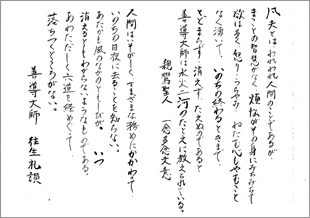 凡夫とはわれわれ人間のことであるが
まことの智慧がなく 煩悩がその身にみちみちて
欲は多く 怒り うらみ ねたむ心しやすむこと
なく湧いて いのちの終わるときまで
とどまらず 消えず たえぬのであると
善導大師は水火二河のたとえに教えられている。
親鸞聖人 一念多念文意
人間はいそがしく さまざまな務めにかかわって
いのちの日夜に去ることを知らない。
あたかも風のなかのともしびが いつ
消えるともわからないようなものである。
あわただしく六道を経めぐって
落ちつくところがない。
善導大師 往生礼讃